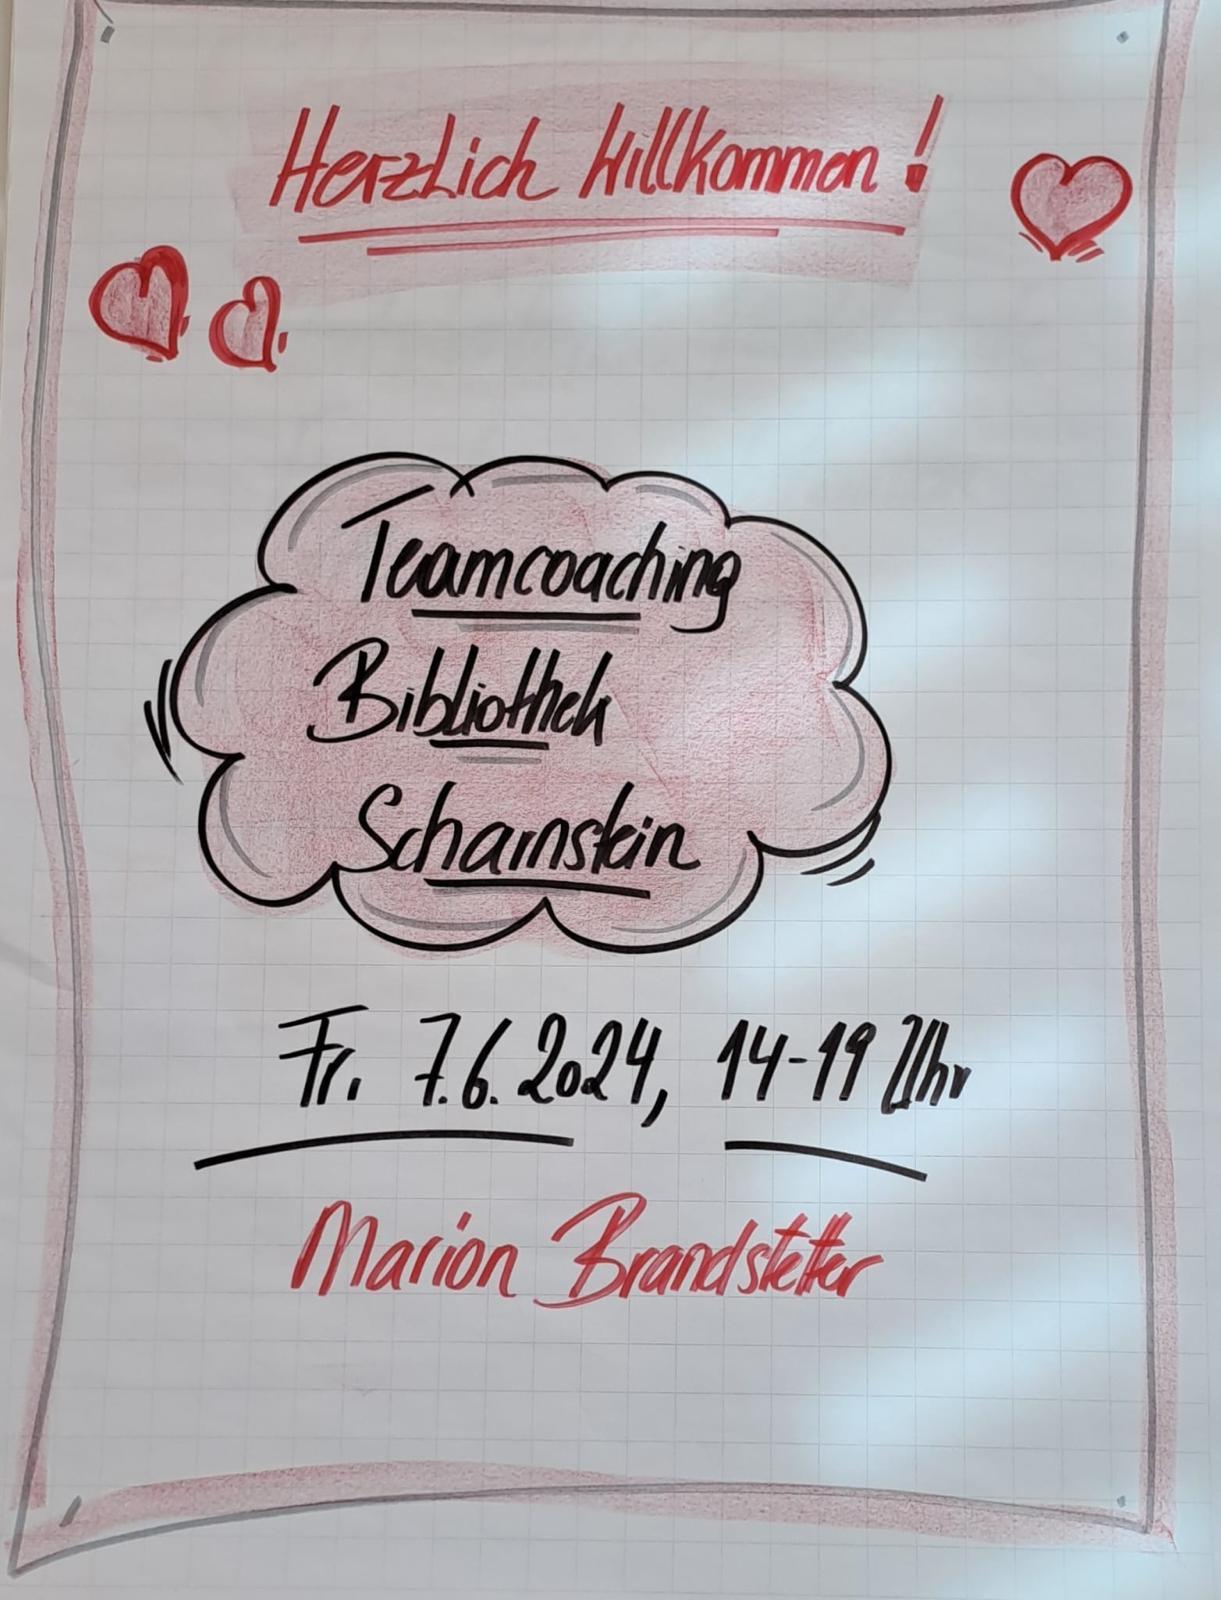 Herzlich Willkommen!
Teamcoaching
Bibliothek
Scharnstein
Fr. 7.6.2024, 14-19 Uhr
Marion Brandstetter